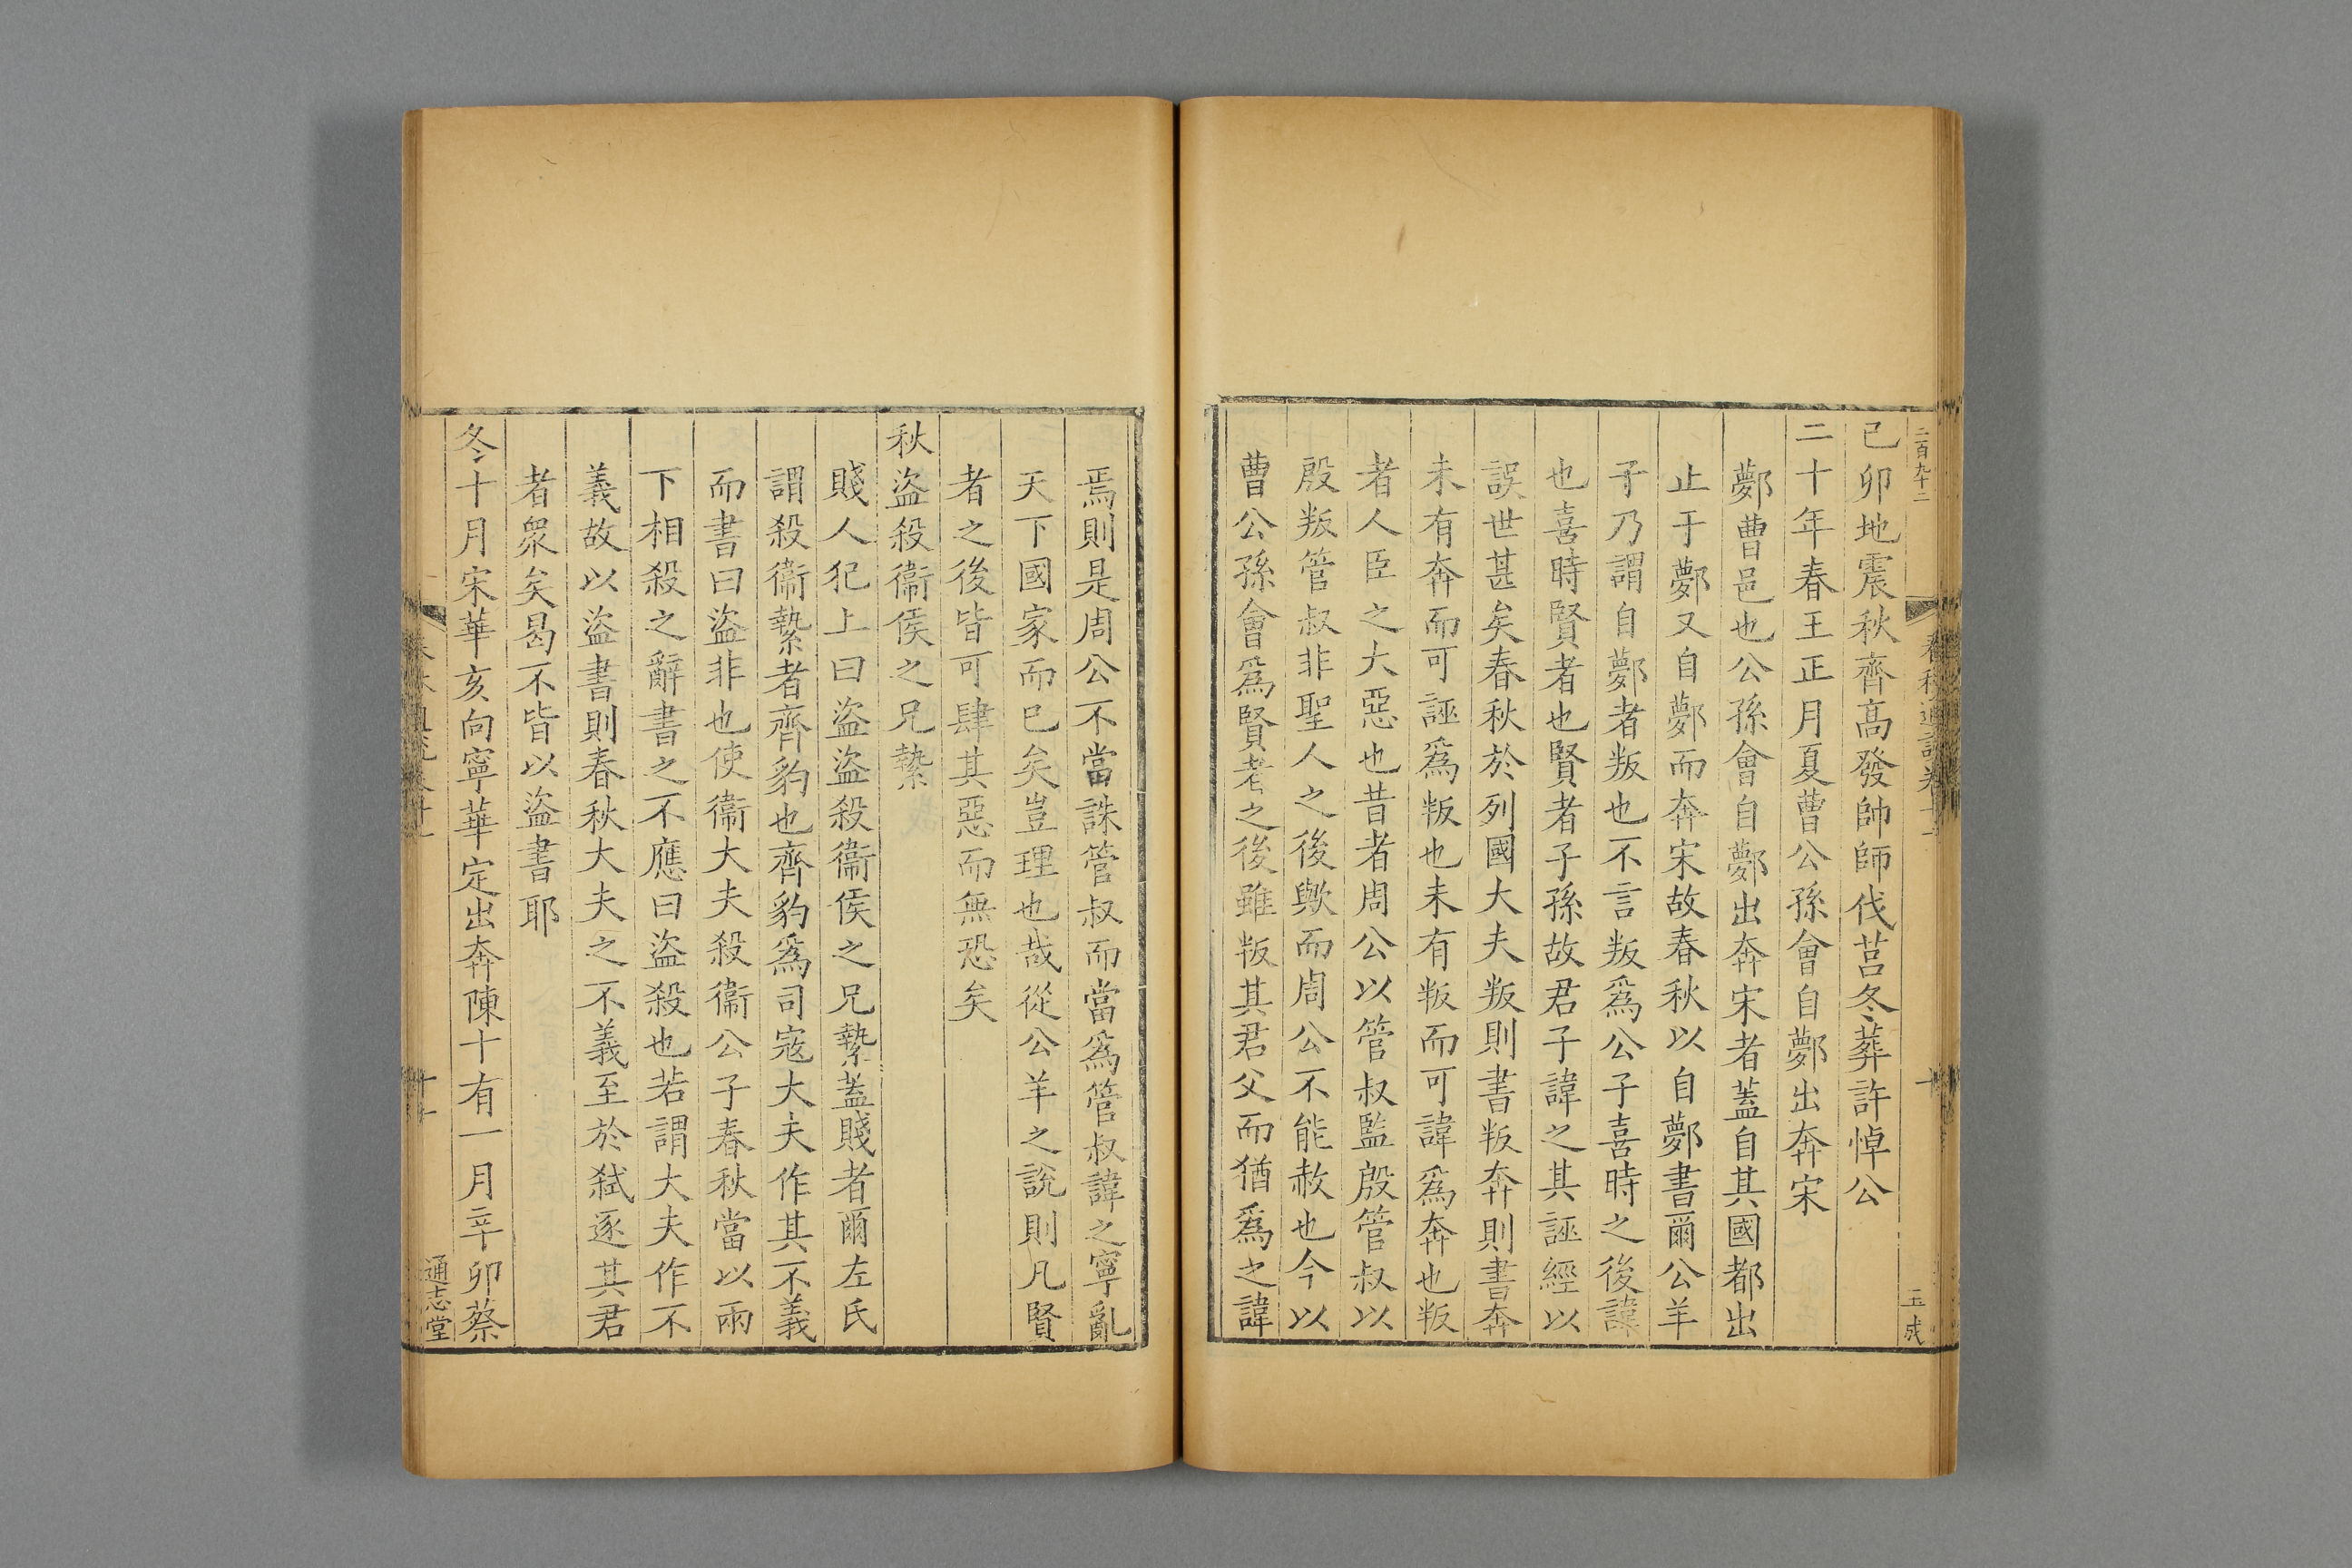 二百九十二
春秋通說卷十一
十
玉成
己卯地震秋齊高發帥師伐莒冬葬許悼公
二十年春王正月夏曹公孫會自鄸出奔宋
鄸曹邑也公孫會自鄸出奔宋者蓋自其國都出
止于鄸又自鄸而奔宋故春秋以自鄸書爾公羊
子乃謂自鄸者叛也不言叛爲公子喜時之後諱
也喜時賢者也賢者子孫故君子諱之其誣經以
誤世甚矣春秋於列國大夫叛則書叛奔則書奔
未有奔而可誣爲叛也未有叛而可諱爲奔也叛
者人臣之大惡也昔者周公以管叔監殷管叔以
殷叛管叔非聖人之後歟而周公不能赦也今以
曹公孫會爲賢者之後雖叛其君父而猶爲之諱
焉則是周公不當誅管叔而當爲管叔諱之寧亂
天下國家而巳矣豈理也哉從公羊之說則凡賢
者之後皆可肆其惡而無恐矣
秋盜殺衞侯之兄縶
賤人犯上曰盜盜殺衞侯之兄縶蓋賤者爾左氏
謂殺衞縶者齊豹也齊豹爲司寇大夫作其不義
而書曰盜非也使衞大夫殺衞公子春秋當以兩
下相殺之辭書之不應曰盜殺也若謂大夫作不
義故以盜書則春秋大夫之不義至於弑逐其君
者衆矣曷不皆以盜書耶
冬十月宋華亥向寧華定出奔陳十有一月辛卯蔡
通志堂